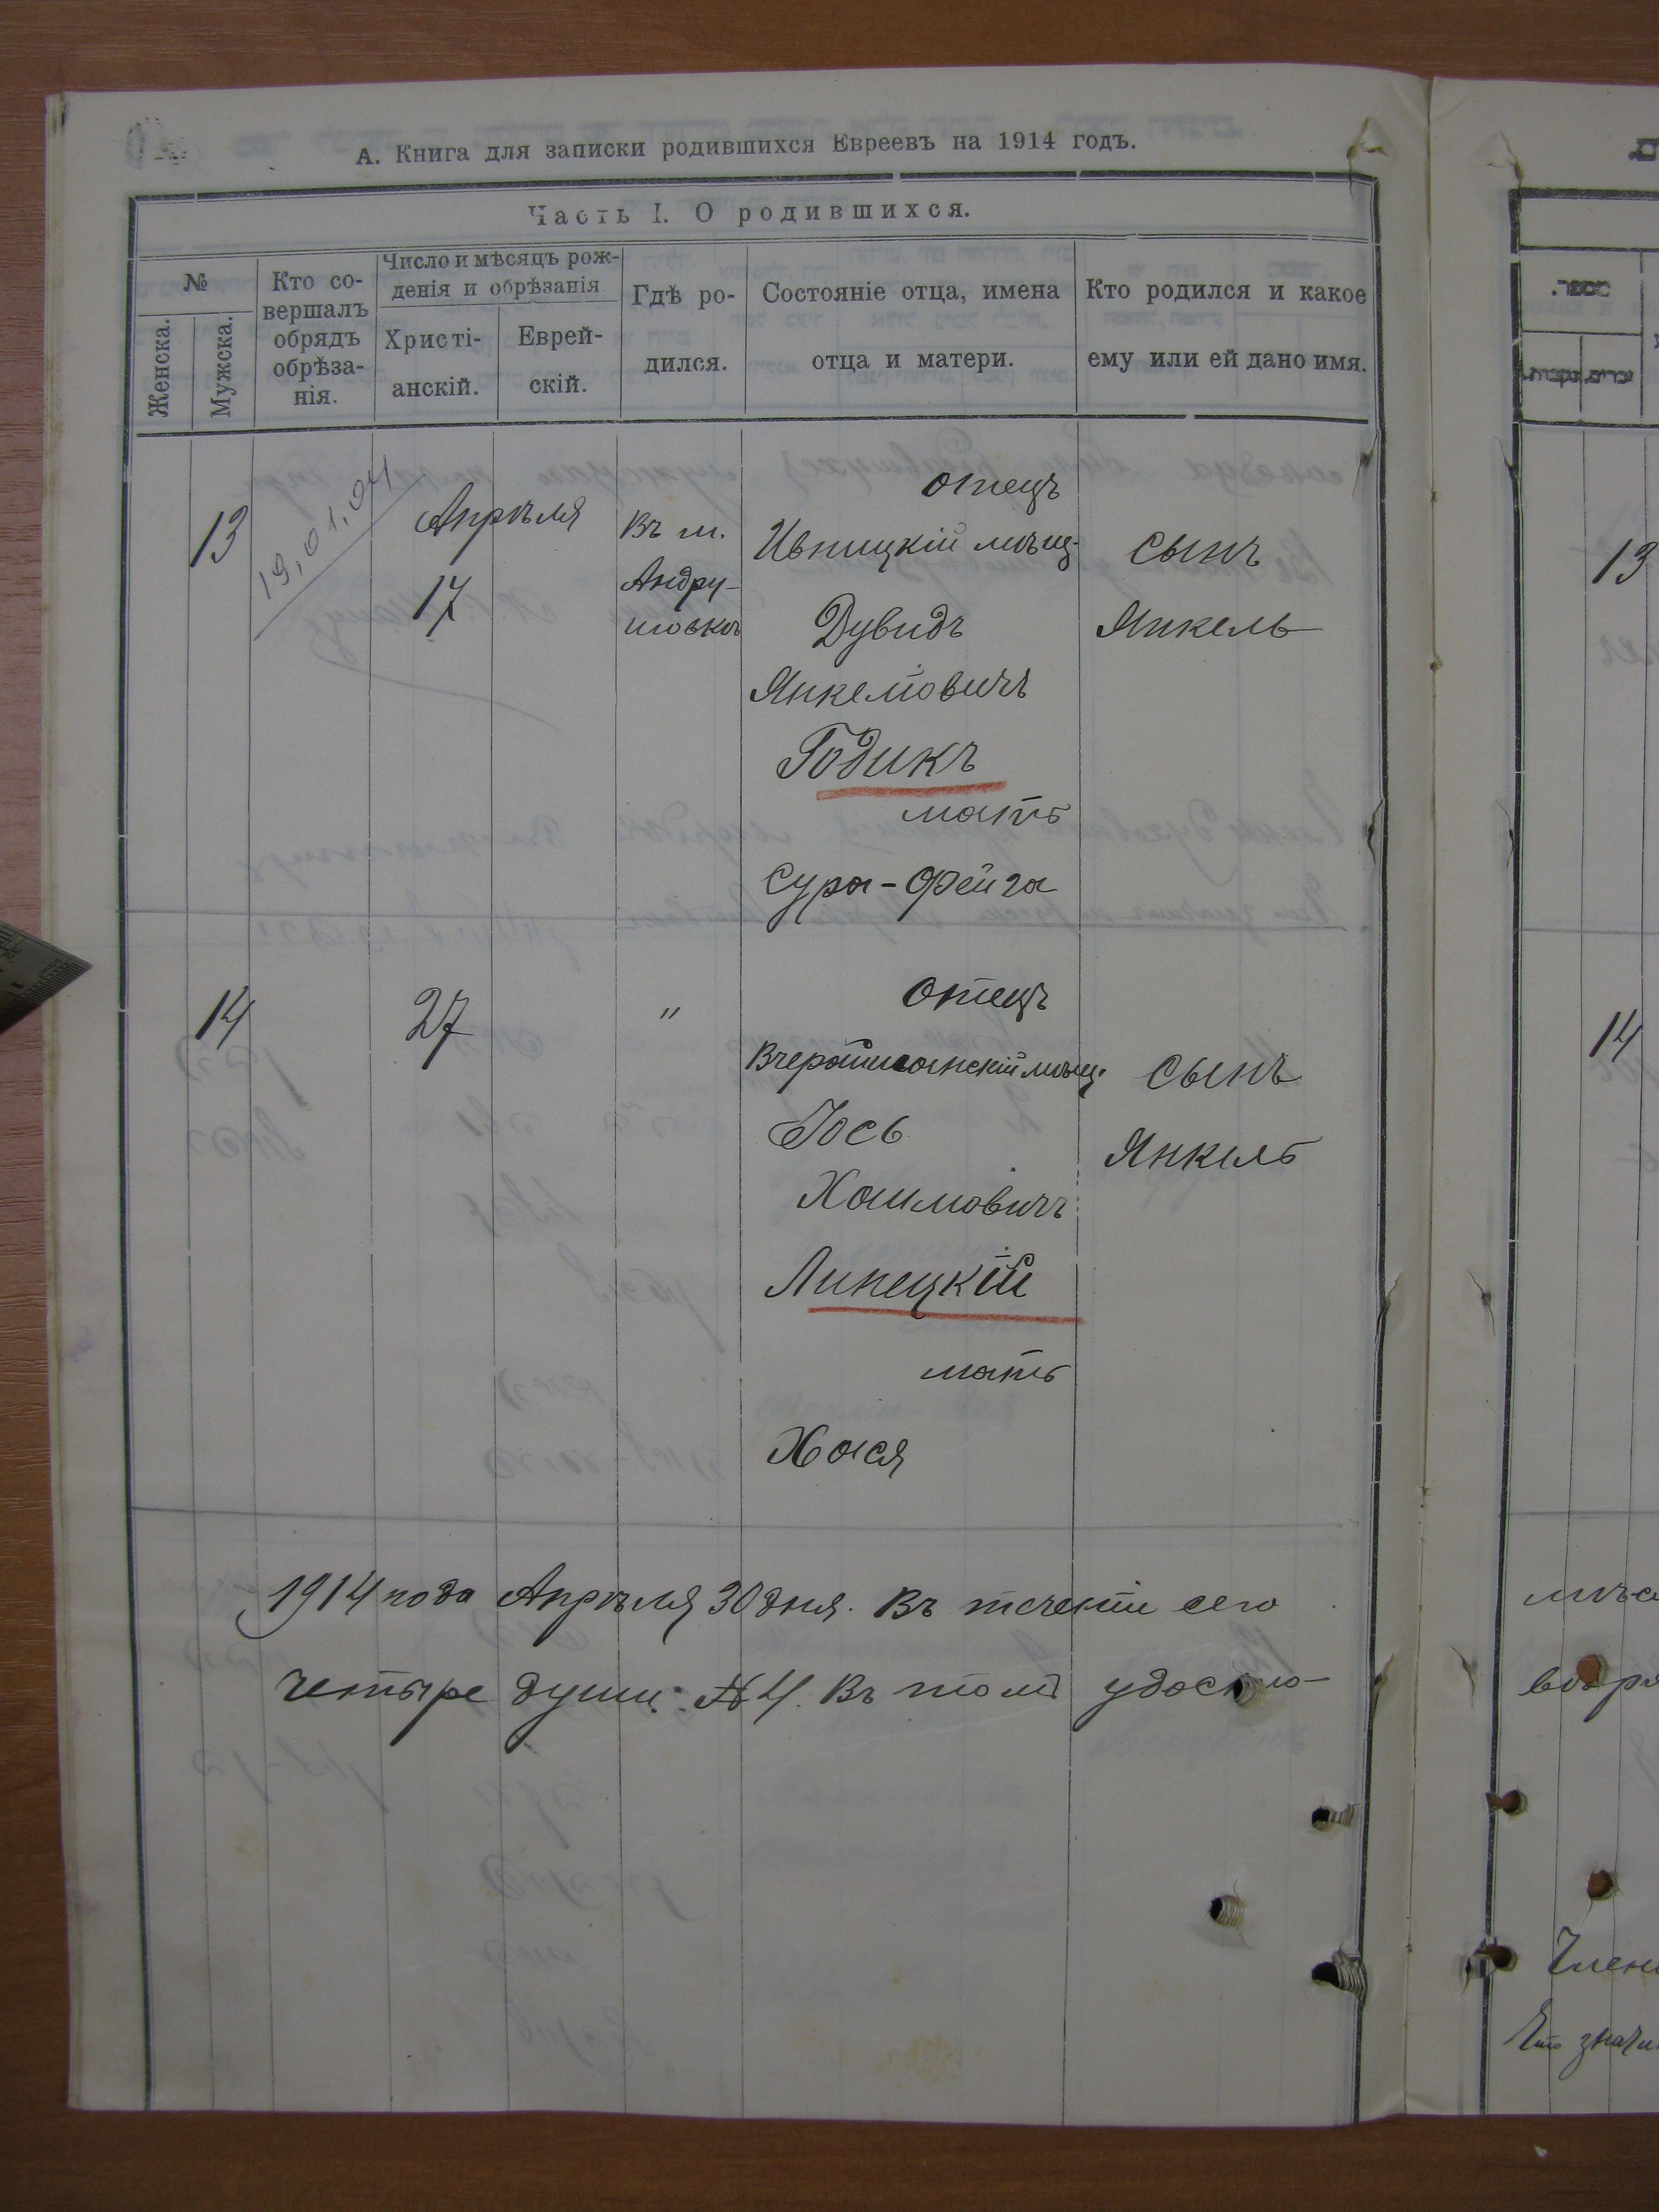 А. Книга для записки родившихся Евреевъ на 1914 годъ.
Часть I. О родившихся.
№
Женска.
Мужска.
Кто со-
вершалъ
обрядъ
обрѣза-
нія.
Число и мѣсяцъ рож-
денія и обрѣзанія
Христі-
анскій.
Еврей-
скій.
Гдѣ ро-
дился.
Состояніе отца, имена
отца и матери.
Кто родился и какое
ему или ей дано имя.
13
19,01,04
Апрѣля
17
Въ м.
Андру-
шовкѣ
отецъ
Ивницкій мѣщ.
Дувидъ
Янкелювичъ
Годикъ
мать
Сура-Фейга
сынъ
Янкель
14
27
"
отецъ
Вчерайшанскій мѣщ.
Іось
Хаимовичъ
Липецкій
мать
Хася
сынъ
Янкель
1914 года Апрѣля 30 дня. Въ теченіи сего
четыре души. №4. Въ томъ удосто-
13
14
мѣс
Члени
Что значи